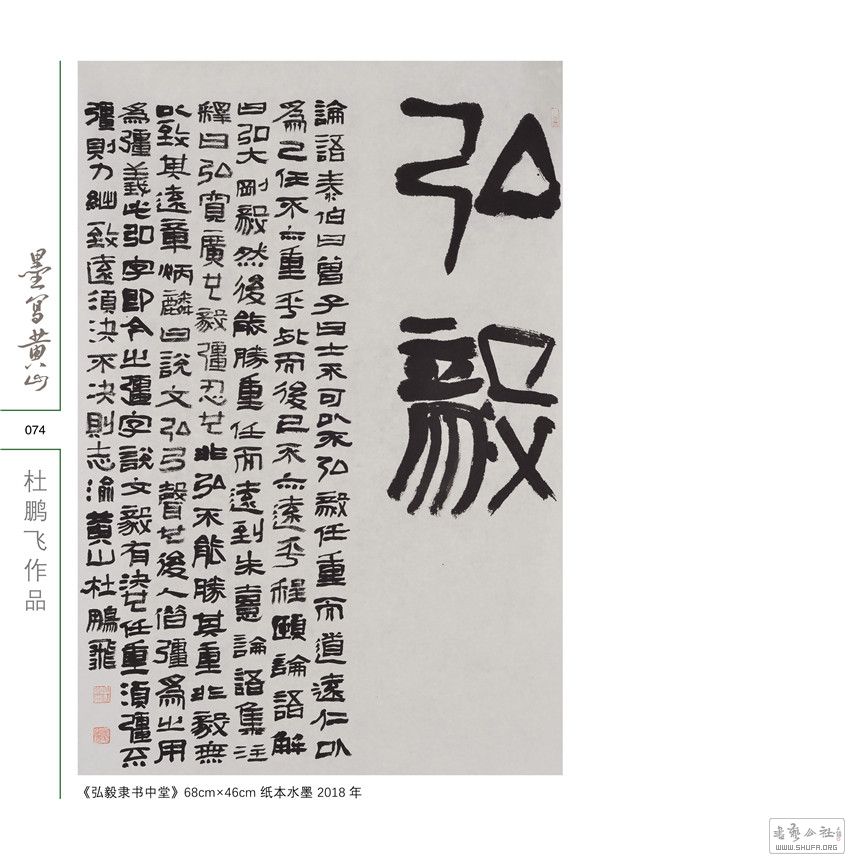 弘毅
論語泰伯曰曾子曰士不可以不弘毅任重而道遠仁以
為己任不亦重乎死而後已不亦遠乎程頤論語解
曰弘大剛毅然後能勝重任而遠到朱憙論語集注
釋曰弘寬廣也毅彊忍也非弘不能勝其重非毅無
以致其遠章炳麟曰說文弘弓聲也後人借彊為之用
為彊義此弘字即今之彊字說文毅有決也任重須彊不
彊則力絀致遠須決不決則志渝黃山杜鵬飛
墨写黄山
074
杜鹏飞作品
《弘毅隶书中堂》68cm×46cm 纸本水墨 2018 年
书艺公社
WWW.SHUFA.ORG